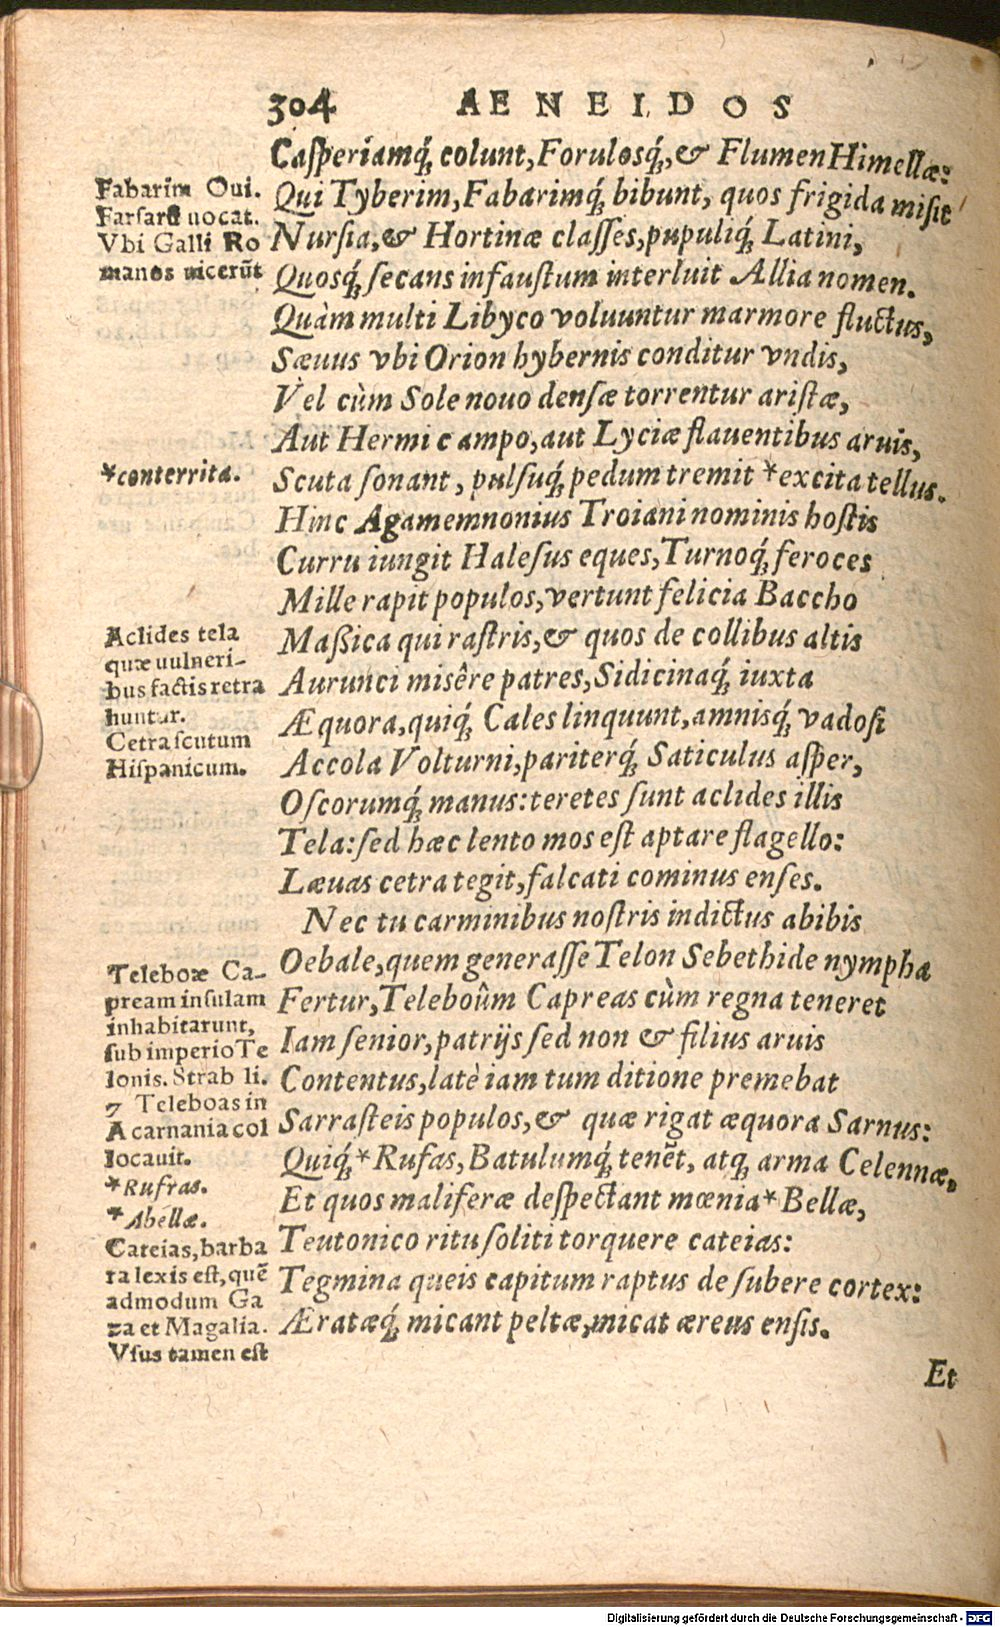 304 AENEIDOS
Casperiamq́; colunt, Forulosq́;, & Flumen Himellæ:
Qui Tyberim, Fabarimq́; bibunt, quos frigida misit
Nursia, & Hortinæ classes, pupuliq́; Latini,
Quosq́; secans infaustum interluit Allia nomen.
Quàm multi Libyco voluuntur marmore fluctus,
Sæuus vbi Orion hybernis conditur vndis,
Vel cùm Sole nouo densæ torrentur aristæ,
Aut Hermi campo, aut Lyciæ flauentibus aruis,
Scuta sonant, pulsuq́; pedum tremit *excita tellus.
Hinc Agamemnonius Troiani nominis hostis
Curru iungit Halesus eques, Turnoq́; feroces
Mille rapit populos, vertunt felicia Baccho
Maßica qui rastris, & quos de collibus altis
Aurunci misêre patres, Sidicinaq́; iuxta
Æquora, quiq́; Cales linquunt, amnisq́; vadosi
Accola Volturni, pariterq́; Saticulus asper,
Oscorumq́; manus: teretes sunt aclides illis
Tela: sed hæc lento mos est aptare flagello:
Læuas cetra tegit, falcati cominus enses.
Nec tu carminibus nostris indictus abibis
Oebale, quem generasse Telon Sebethide nympha
Fertur, Teleboûm Capreas cùm regna teneret
Iam senior, patrijs sed non & filius aruis
Contentus, latè iam tum ditione premebat
Sarrasteis populos, & quæ rigat æquora Sarnus:
Quiq́; *Rufas, Batulumq́; tenẽt, atq; arma Celennæ,
Et quos maliferæ despectant mœnia *Bellæ,
Teutonico ritu soliti torquere cateias:
Tegmina queis capitum raptus de subere cortex:
Æratæq́; micant peltæ, micat æreus ensis.
Et
Fabarim Oui.
Farfarũ uocat.
Vbi Galli Ro
manos uicerũt
*conterrita.
Aclides tela
quæ uulneri-
bus factis retra
huntur.
Cetra scutum
Hispanicum.
Teleboæ Ca-
pream insulam
inhabitarunt,
sub imperio Te
lonis. Strab li.
7 Teleboas in
Acarnania col
locauit.
*Rufras.
*Abellæ.
Cateias, barba
ra lexis est, quẽ
admodum Ga
za et Magalia.
Vsus tamen est
Digitalisierung gefördert durch die Deutsche Forschungsgemeinschaft - DFG